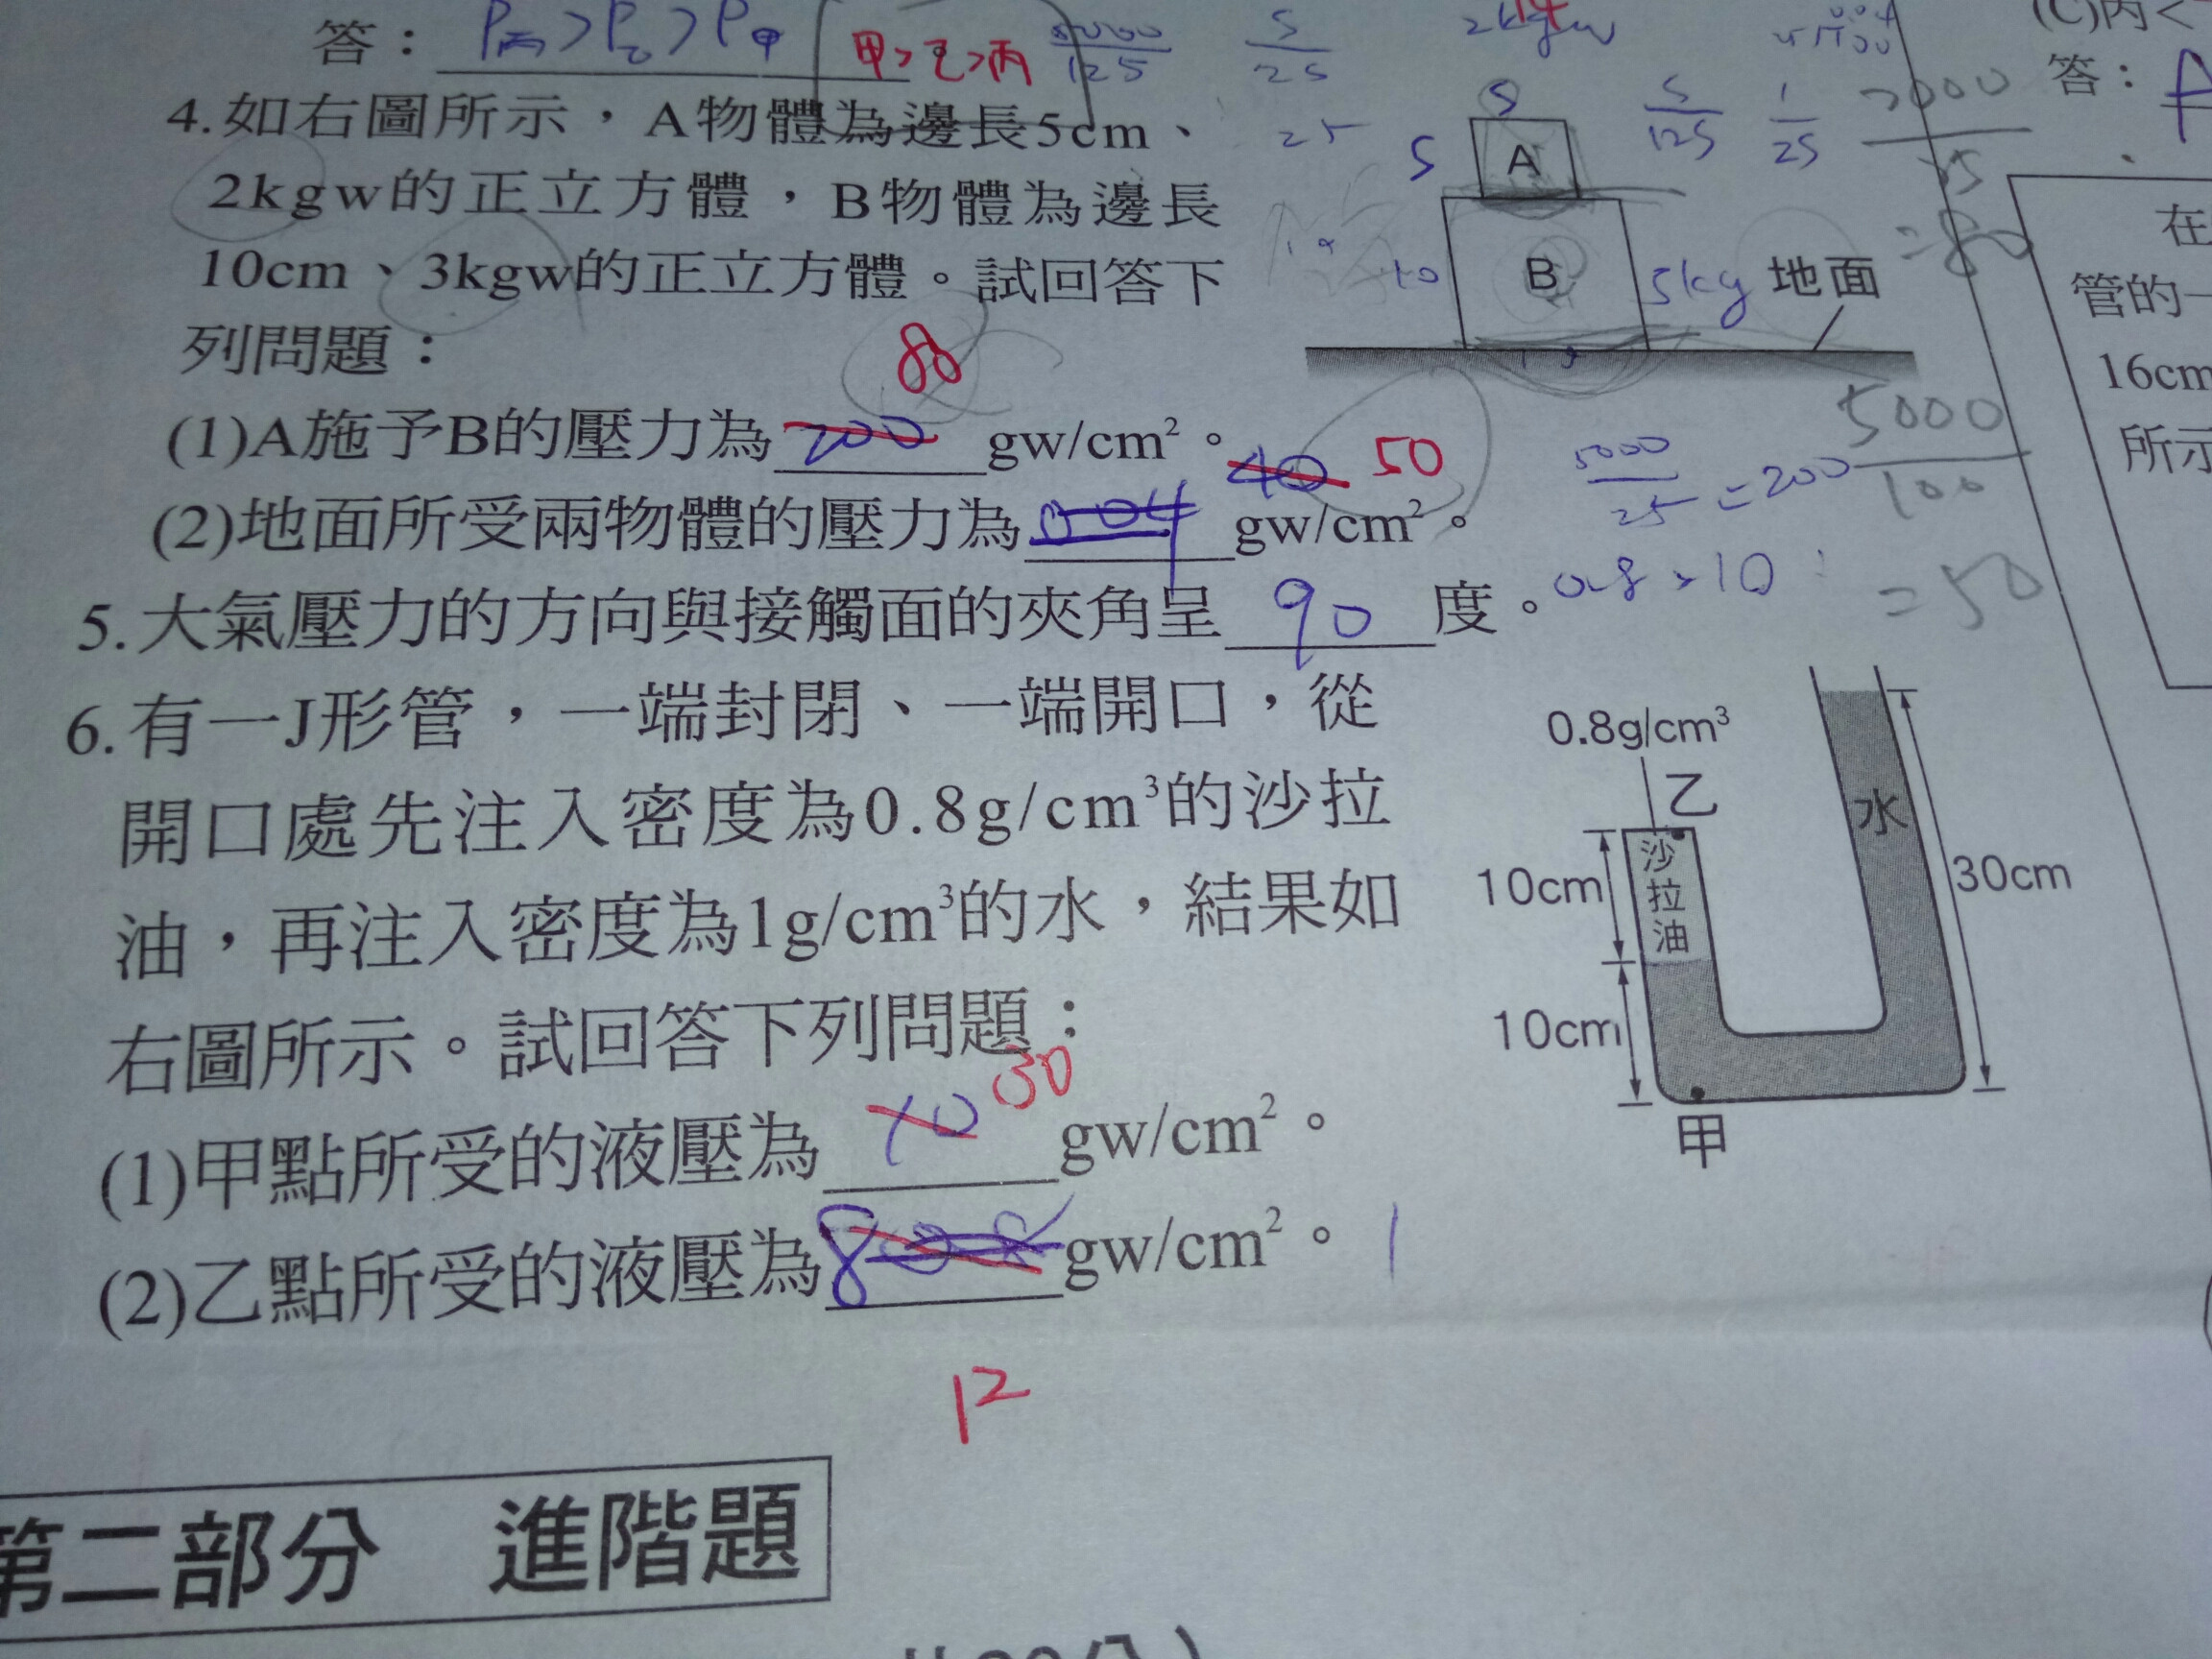 答：P丙>P乙>P甲 甲>乙>丙
5000/125
5/25
25
2kgw
(C)丙<
答：A
4.如右圖所示，A物體為邊長5cm、
2kgw的正立方體，B物體為邊長
10cm、3kgw的正立方體。試回答下
列問題：
5
5
A
10
B
5kg
地面
5/125
1/25
=80
(1)A施予B的壓力為200gw/cm²。
80
(2)地面所受兩物體的壓力為004gw/cm²。
40
50
5000/25=200
5000/100
=50
5.大氣壓力的方向與接觸面的夾角呈90度。
6.有一J形管，一端封閉、一端開口，從
開口處先注入密度為0.8g/cm³的沙拉
油，再注入密度為1g/cm³的水，結果如
右圖所示。試回答下列問題：
(1)甲點所受的液壓為10gw/cm²。
30
(2)乙點所受的液壓為8gw/cm²。
12
0.8g/cm³
乙
水
沙拉油
10cm
30cm
10cm
甲
第二部分 進階題
在
管的一
16cm
所示